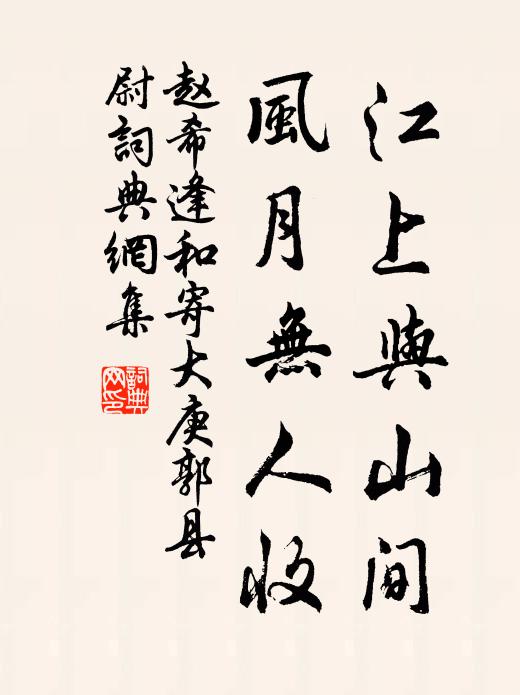 江上與山间
風月無人收
赵希逢和寄大庾郭县
尉詞典網集
詞典網印